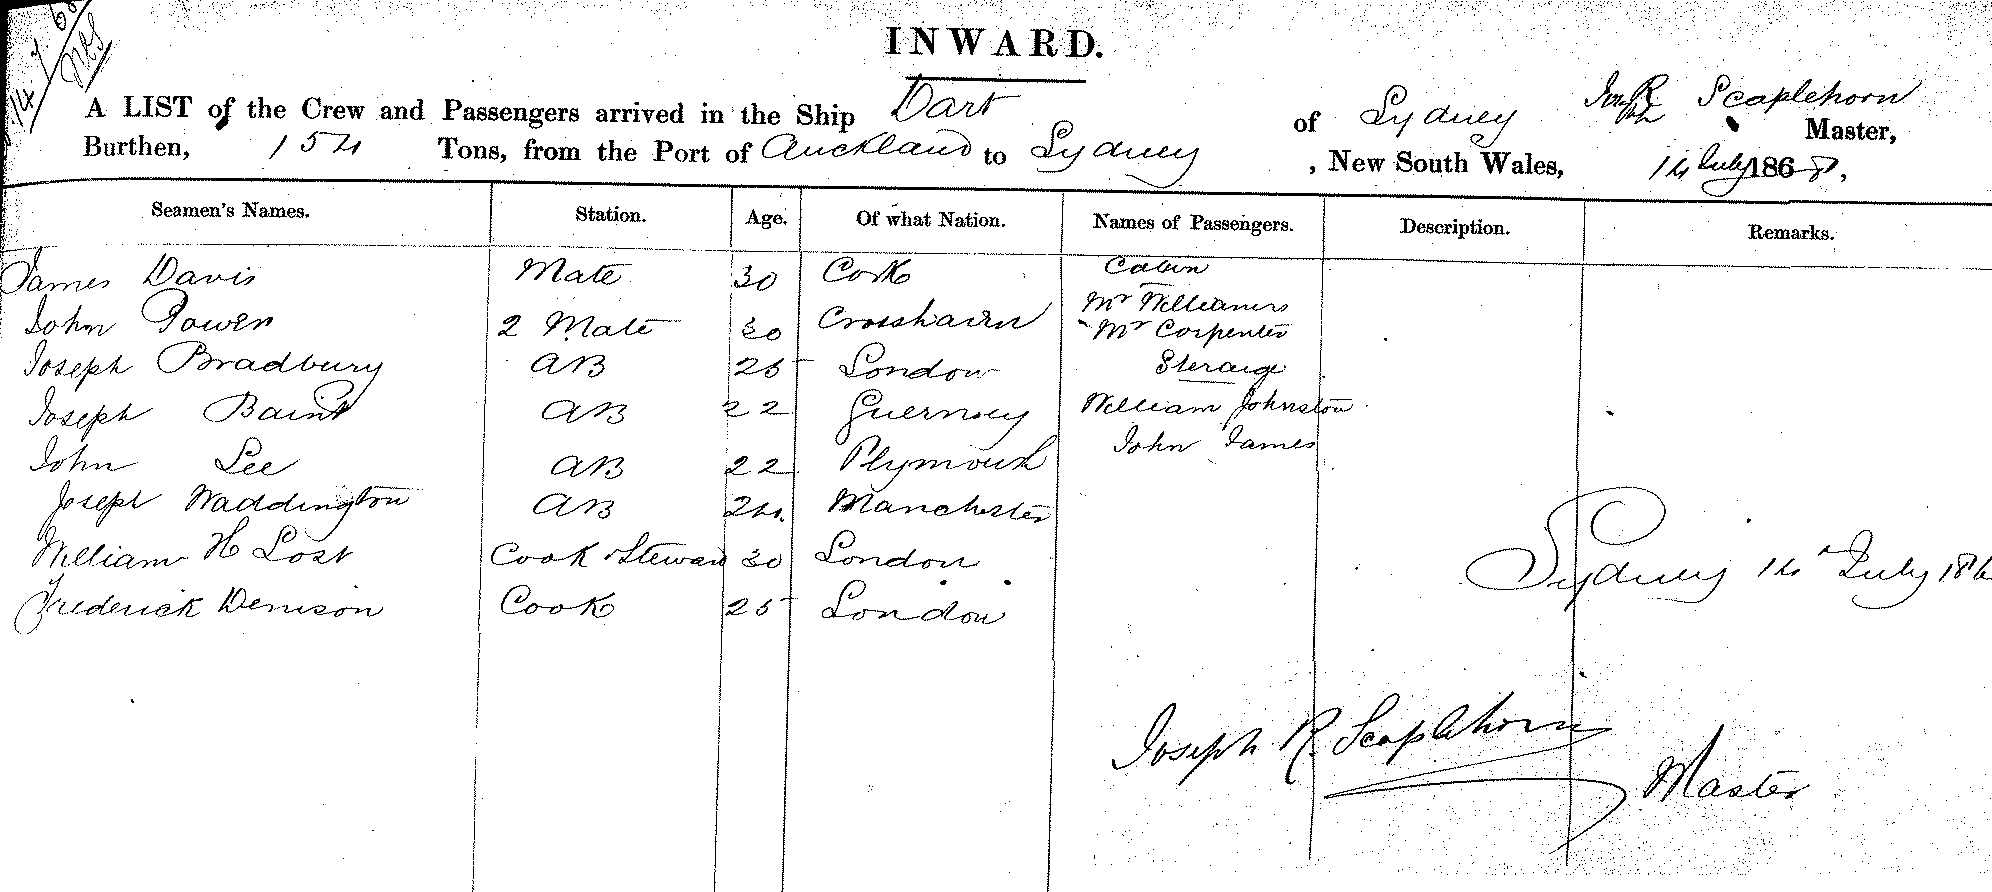 14/7/68
INWARD.
A LIST of the Crew and Passengers arrived in the Ship Dart of Sydney Josh R Scaplehorn Master,
Burthen, 154 Tons, from the Port of Auckland to Sydney , New South Wales, 14 July 1868,
Seamen's Names. Station. Age. Of what Nation. Names of Passengers. Description. Remarks.
James Davis Mate 30 Cork Cabin
Mr Williams
John Power 2 Mate 30 Crosshaven Mr Carpenter
Joseph Bradbury AB 25 London Sterage
Joseph Baint AB 22 Guernsey William Johnston
John Lee AB 22 Plymouth John James
Joseph Waddington AB 24 Manchester
William H Lost Cook & Steward 30 London
Sydney 14th July 186
Frederick Denison Cook 25 London
Joseph R. Scaplehorn
Master